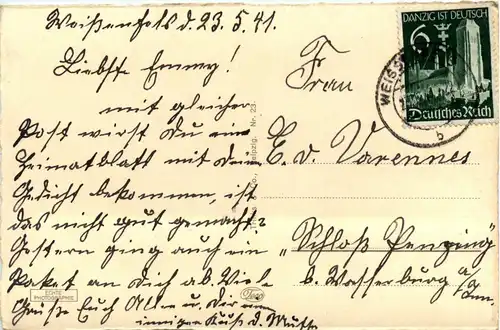 Weißenfels d. 23.5.41.
Liebste Emmy!
mit gleicher
Post wirst Du ein
Heimatblatt mit dem
Gedicht bekommen, ist
das nicht gut gemacht?
Gestern ging auch ein
Paket an Dich ab. Viele
Grüße Euch Allen u. Dir einen
innigen Kuß d. Mutti
Frau
E. v. Varennes
"Schloß Penzing"
b. Wasserburg a/
Inn.
DANZIG IST DEUTSCH
6
Deutsches Reich
WEISS
b
Leipzig. Nr. 23
ECHTE
PHOTOGRAPHIE